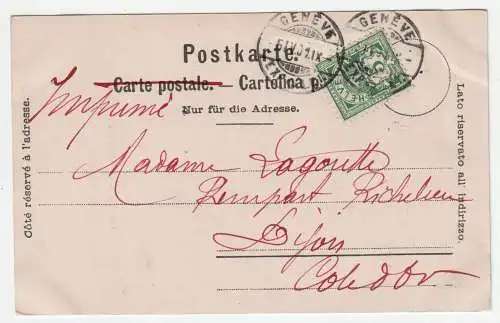 GENÈVE
GENÈVE
Postkarte.
Carte postale. — Cartolina p
Nur für die Adresse.
Imprimé
Côté réservé à l'adresse.
Lato riservato all' indirizzo.
Madame Lagoutte
Rempart Richelieu
Dijon
Cote d'Or